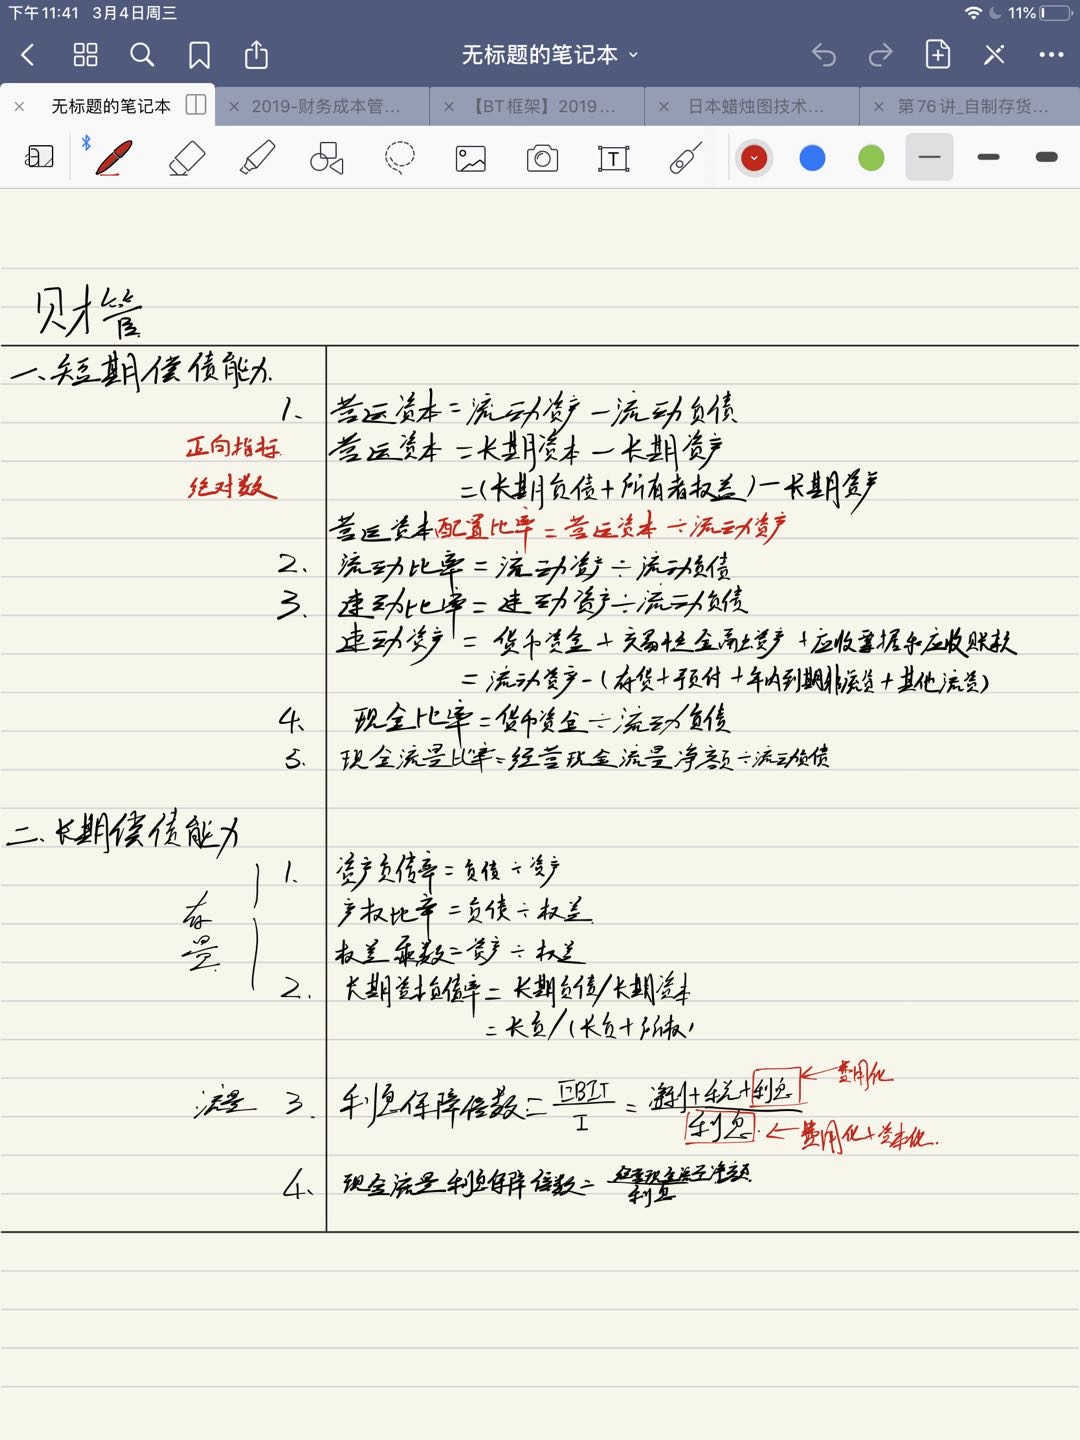 下午11:41 3月4日周三 11%
无标题的笔记本
无标题的笔记本 2019-财务成本管... 【BT框架】2019... 日本蜡烛图技术... 第76讲_自制存货...
T
财管
一、短期偿债能力
1. 营运资本=流动资产-流动负债
正向指标 营运资本=长期资本-长期资产
绝对数 =(长期负债+所有者权益)-长期资产
营运资本配置比率=营运资本÷流动资产
2. 流动比率=流动资产÷流动负债
3. 速动比率=速动资产÷流动负债
速动资产=货币资金+交易性金融资产+应收票据和应收账款
=流动资产-(存货+预付+年内到期非流资+其他流资)
4. 现金比率=货币资金÷流动负债
5. 现金流量比率=经营现金流量净额÷流动负债
二、长期偿债能力
1. 资产负债率=负债÷资产
存量 产权比率=负债÷权益
权益乘数=资产÷权益
2. 长期资本负债率=长期负债/长期资本
=长负/(长负+所权)
流量 3. 利息保障倍数=EBIT/I=净利+税+利息/利息
←费用化
←费用化+资本化.
4. 现金流量利息保障倍数=经营现金流量净额/利息